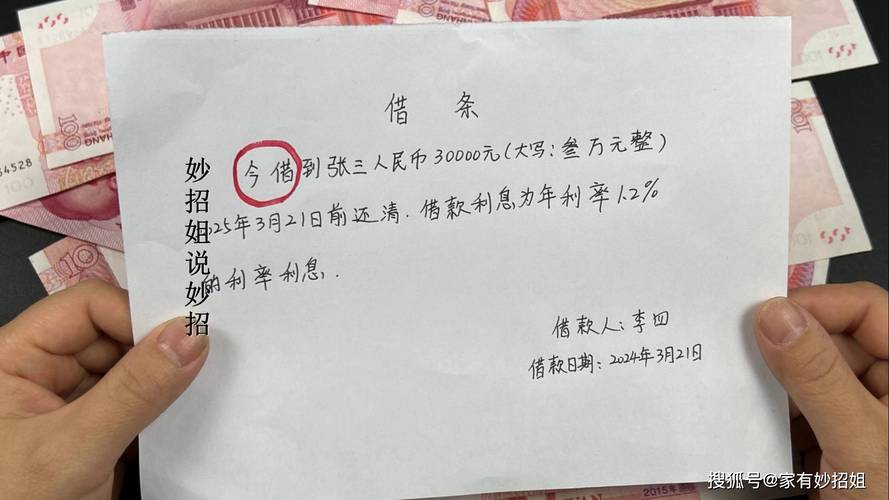 借 条
今借到张三人民币30000元(大写:叁万元整)
025年3月21日前还清.借款利息为年利率1.2%
的利率利息.
借款人:李四
借款日期:2024年3月21日
妙招姐说妙招
搜狐号@家有妙招姐
100
64528
100
10
2015年